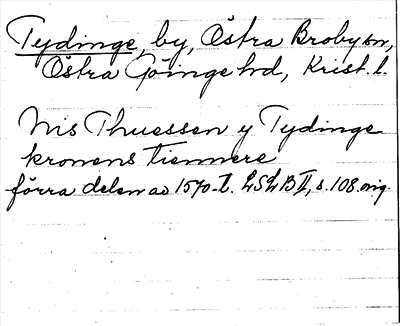 Tydinge, by, Östra Broby sn,
Östra Göinge hd, Krist. l.
Nis Thuessen y Tydinge
kronens tiennere
förra delen av 1570-t. LSLB II, s. 108. orig.